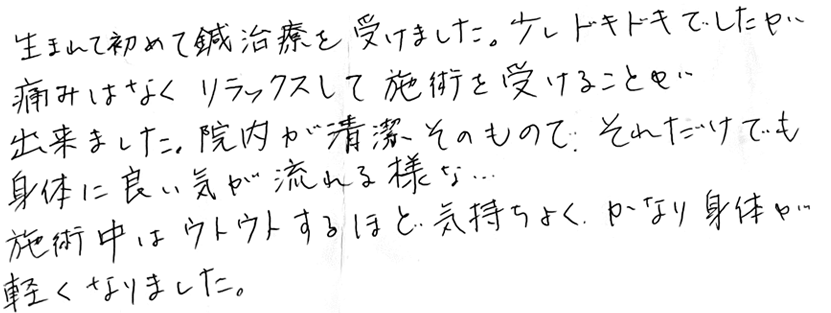 生まれて初めて鍼治療を受けました。少しドキドキでしたが
痛みはなくリラックスして施術を受けることが
出来ました。院内が清潔そのもので、それだけでも
身体に良い気が流れる様な…
施術中はウトウトするほど気持ちよく、かなり身体が
軽くなりました。